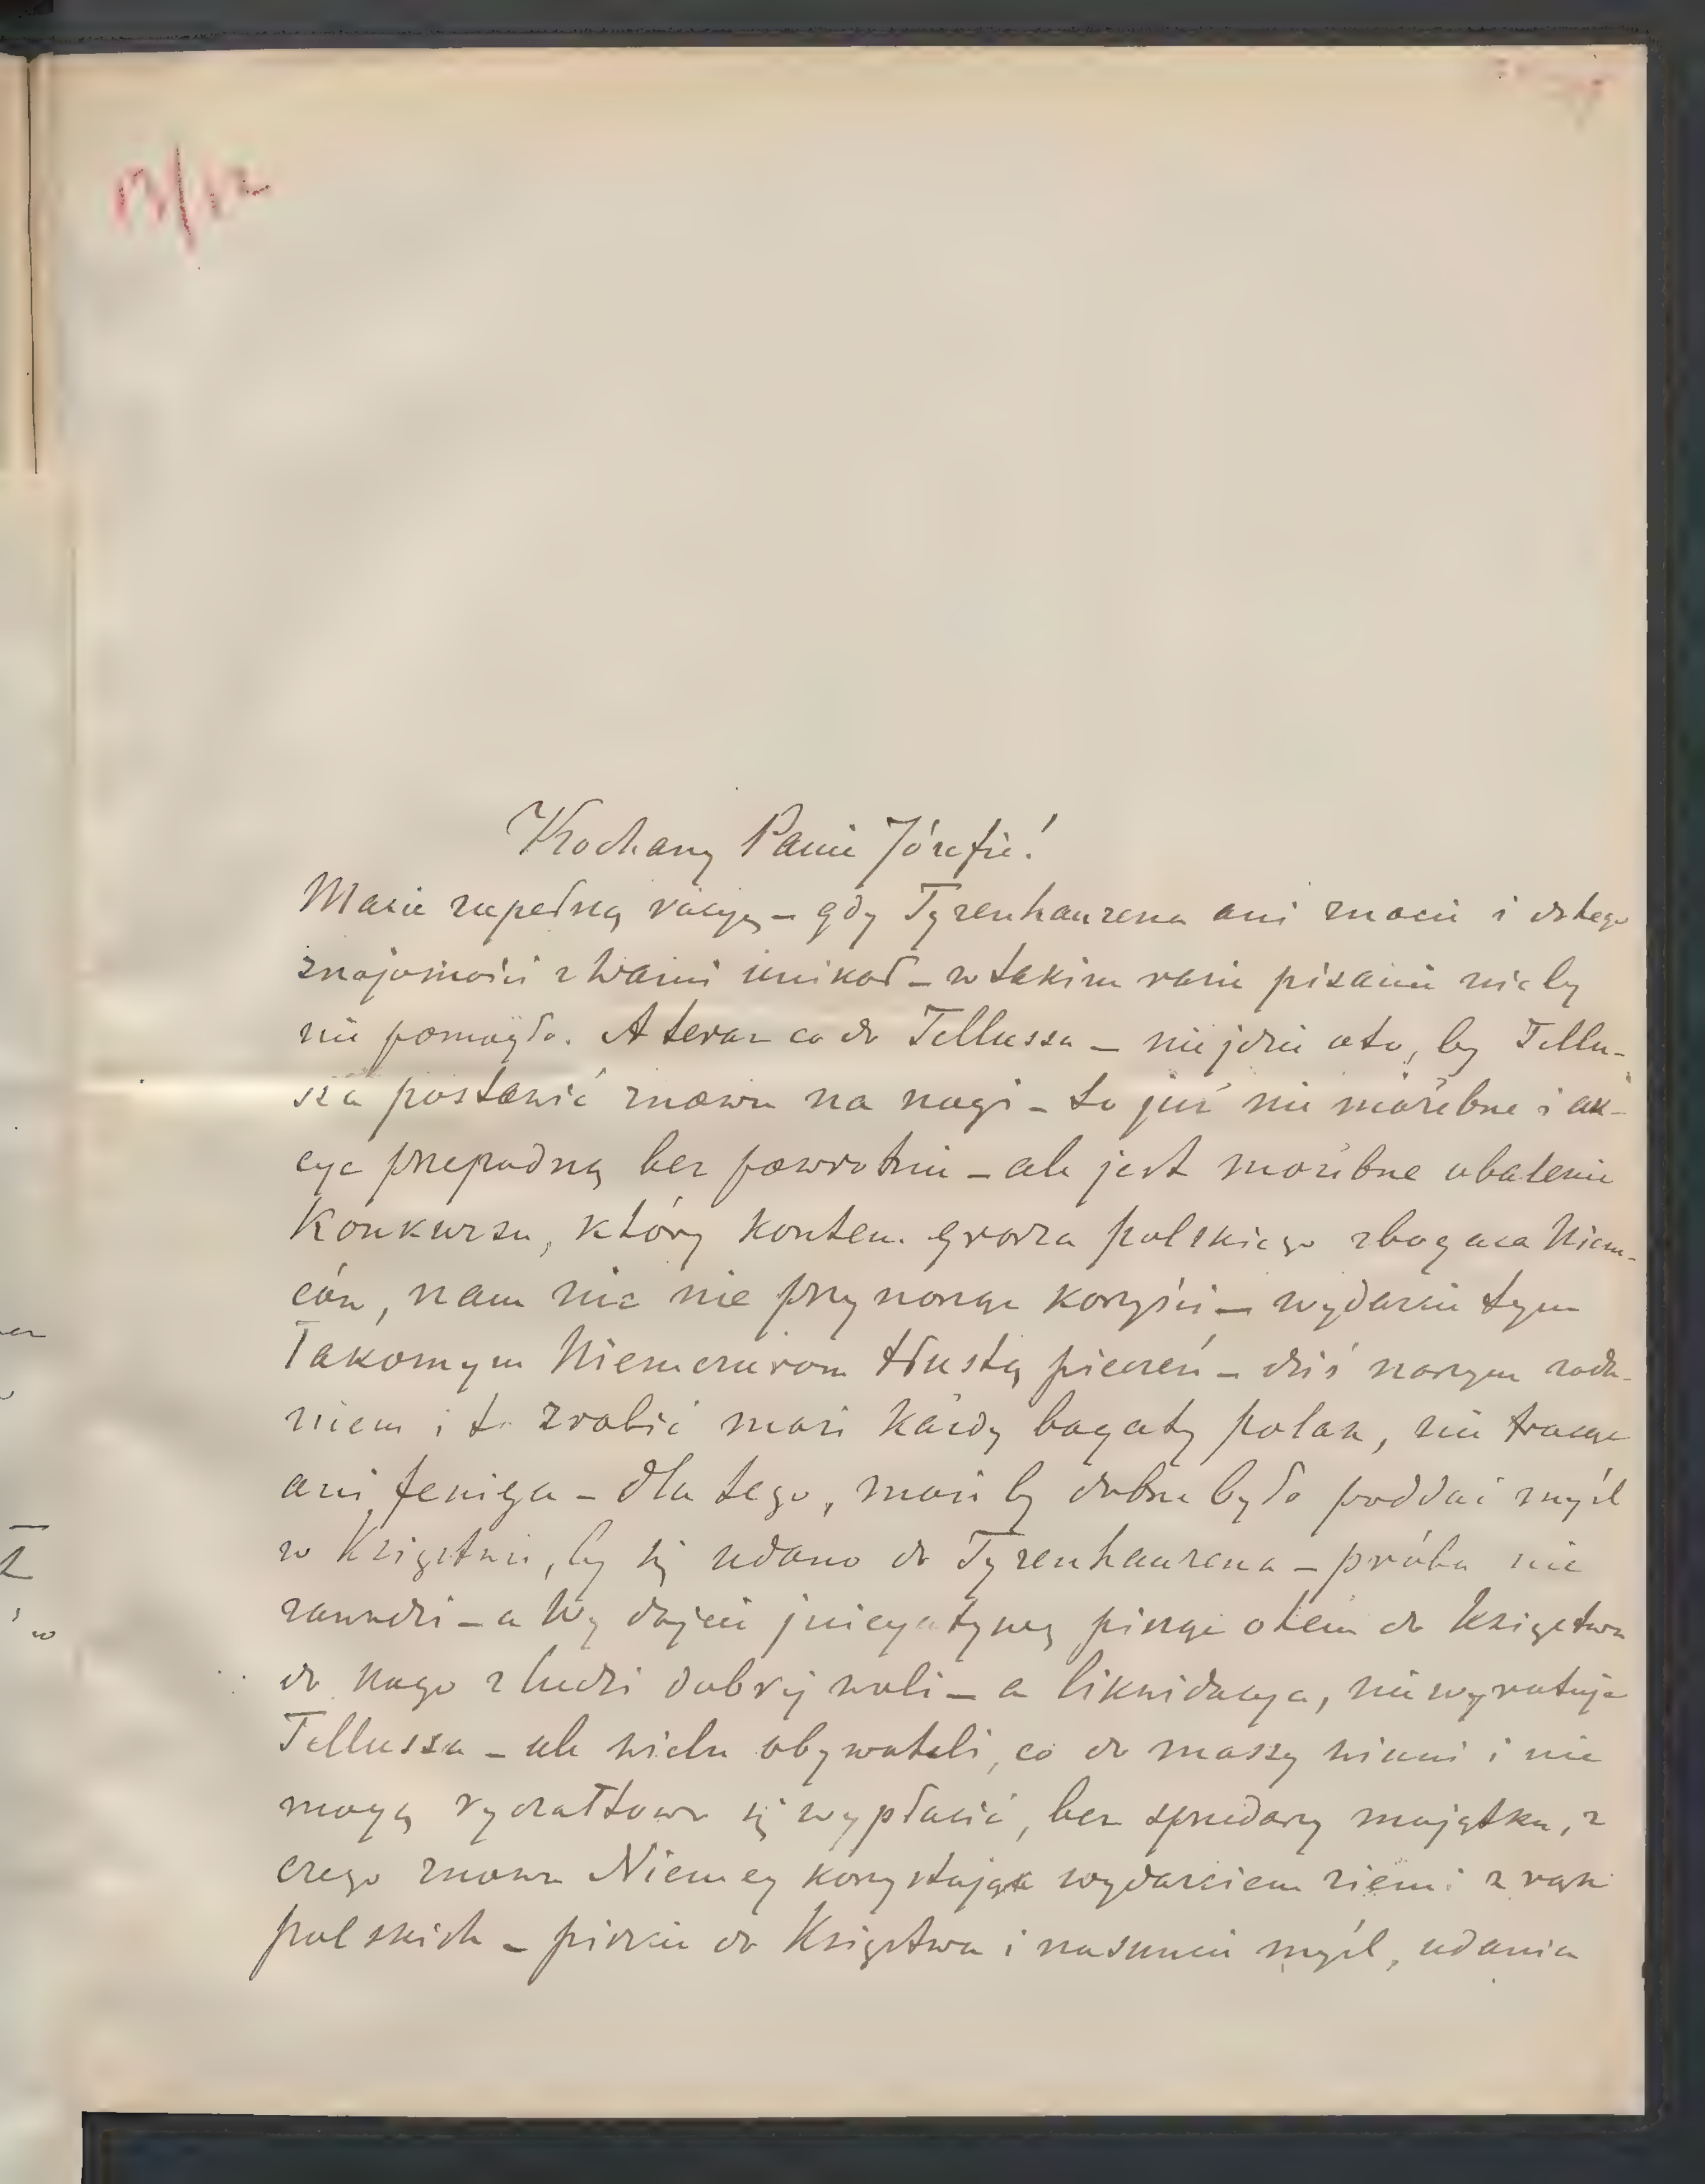 13/12
Kochany Panie Józefie!
Macie zupełną racyę – gdy Tyzenhauzena ani znacie i do tego
znajomości z Wami unikał – w takim razie pisanie nic by
nie pomogło. A teraz co do Tellussa – nie jdzie oto, by Tellu-
sza postawić znowu na nogi – to już nie możebne i ak-
cye przepadną bez powrotnie – ale jest możebne obalenie
Konkursu, który kosztem grosza polskiego zbogaca Niem-
ców, nam nic nie przynosząc korzyści – wydarcie tym
łakomym Niemczurom tłustą pieczeń – dziś naszym zada-
niem i to zrobić może każdy bogaty polak, nie tracąc
ani feniga – dla tego, może by dobrze było poddać myśl
w Księstwie, by się udano do Tyzenhauzena – próba nie
zawadzi – a Wy dajcie jnicyatywę pisząc otem do Księstwa
do kogo z ludzi dobrej woli – a likwidacya, nie wyratuje
Tellussa – ale wielu obywateli, co do massy winni i nie
mogą ryczałtowo się wypłacić, bez sprzedaży majątku, z
czego znowu Niemcy korzystają wydarciem ziemi z rąk
polskich – piszcie do Księstwa i nasuncie myśl, udania